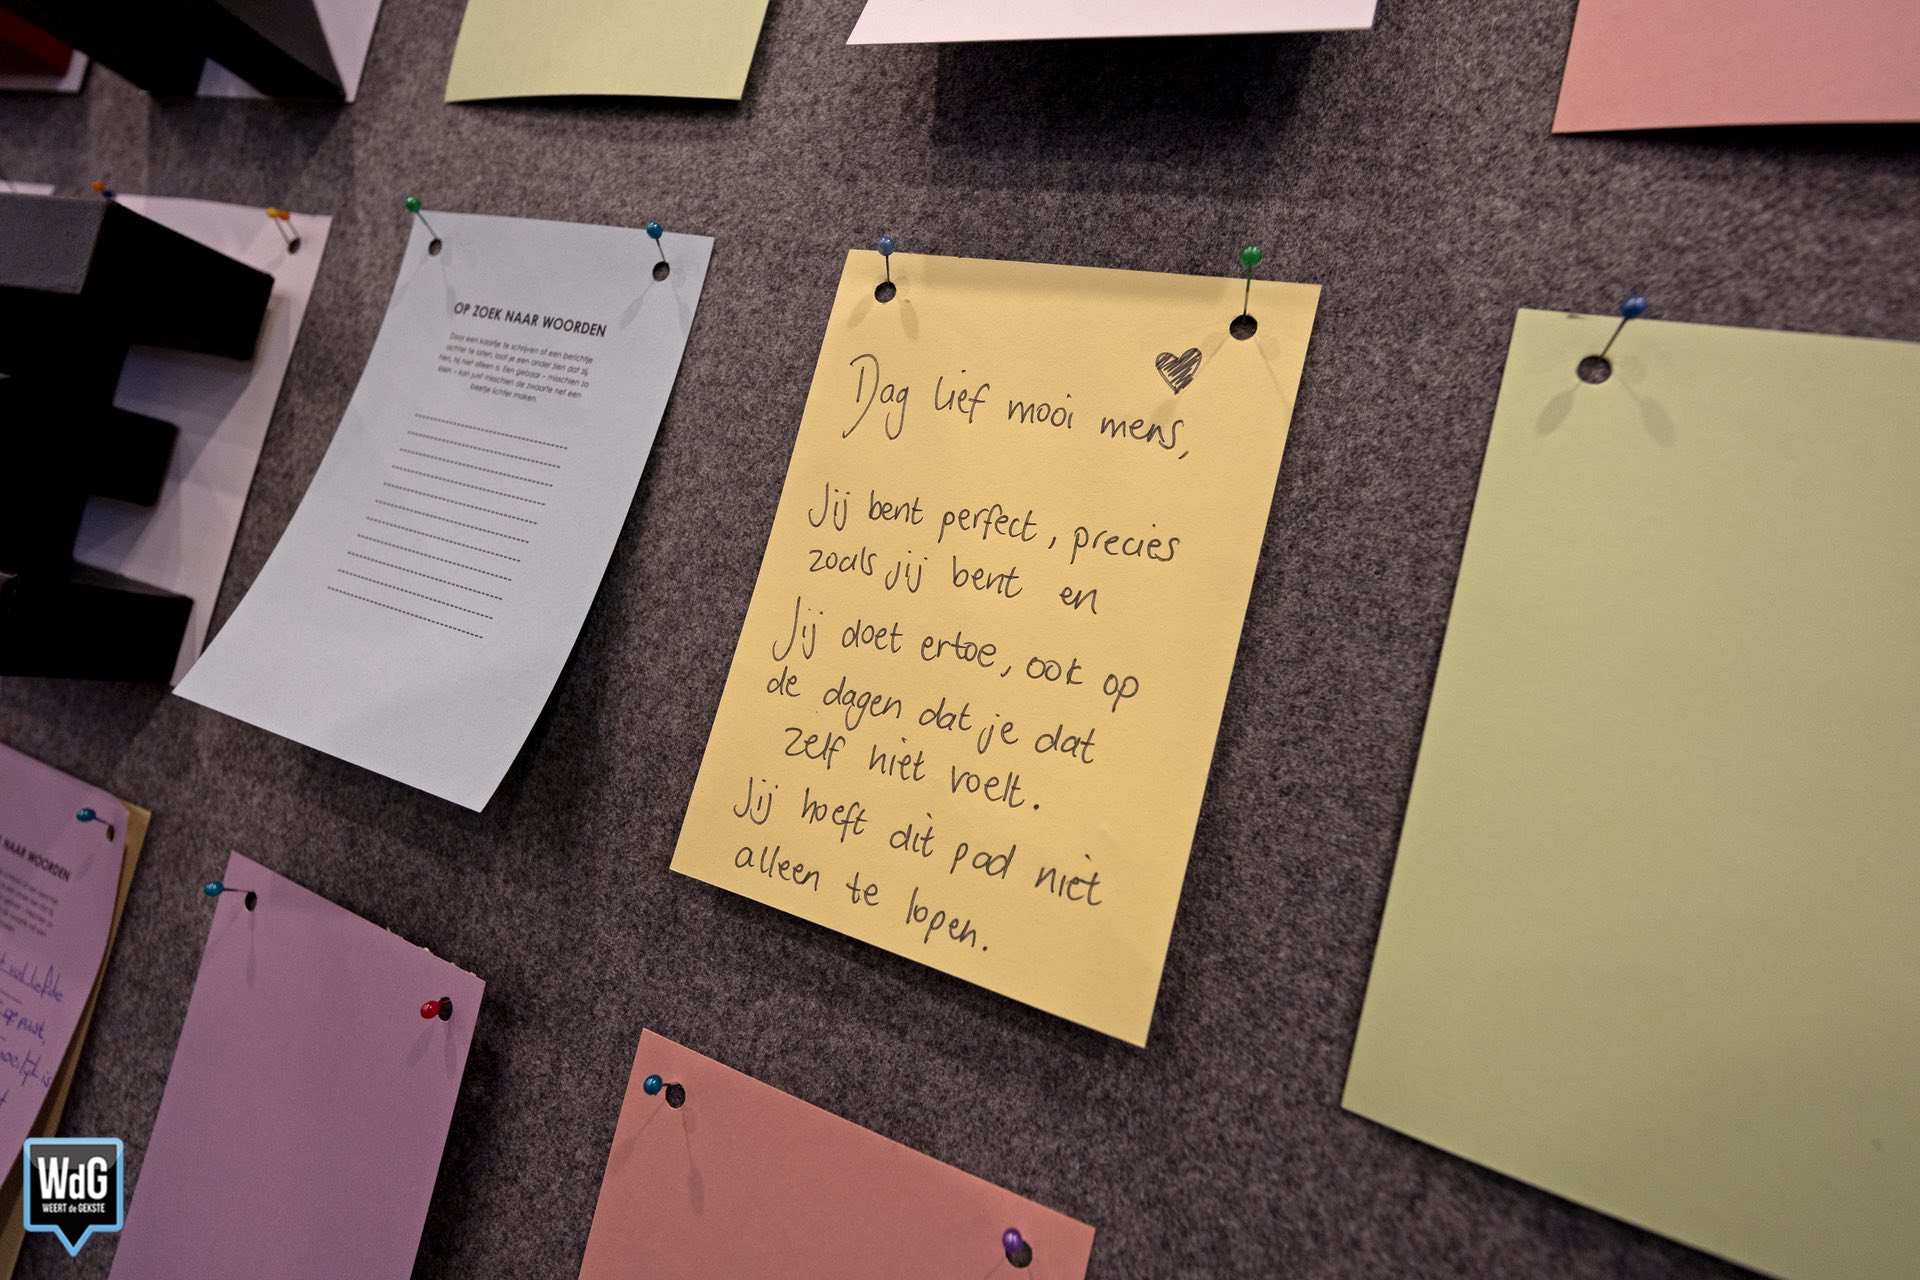 OP ZOEK NAAR WOORDEN
Door een kaartje te schrijven of een berichtje
achter te laten, laat je een ander zien dat zij,
hen, hij niet alleen is. Een gebaar – misschien zo
klein – kan juist misschien de zwaarte net een
beetje lichter maken.
Dag lief mooi mens,
Jij bent perfect, precies
zoals jij bent en
Jij doet ertoe, ook op
de dagen dat je dat
zelf niet voelt.
Jij hoeft dit pad niet
alleen te lopen.
NAAR WOORDEN
WdG
WEERT de GEKSTE